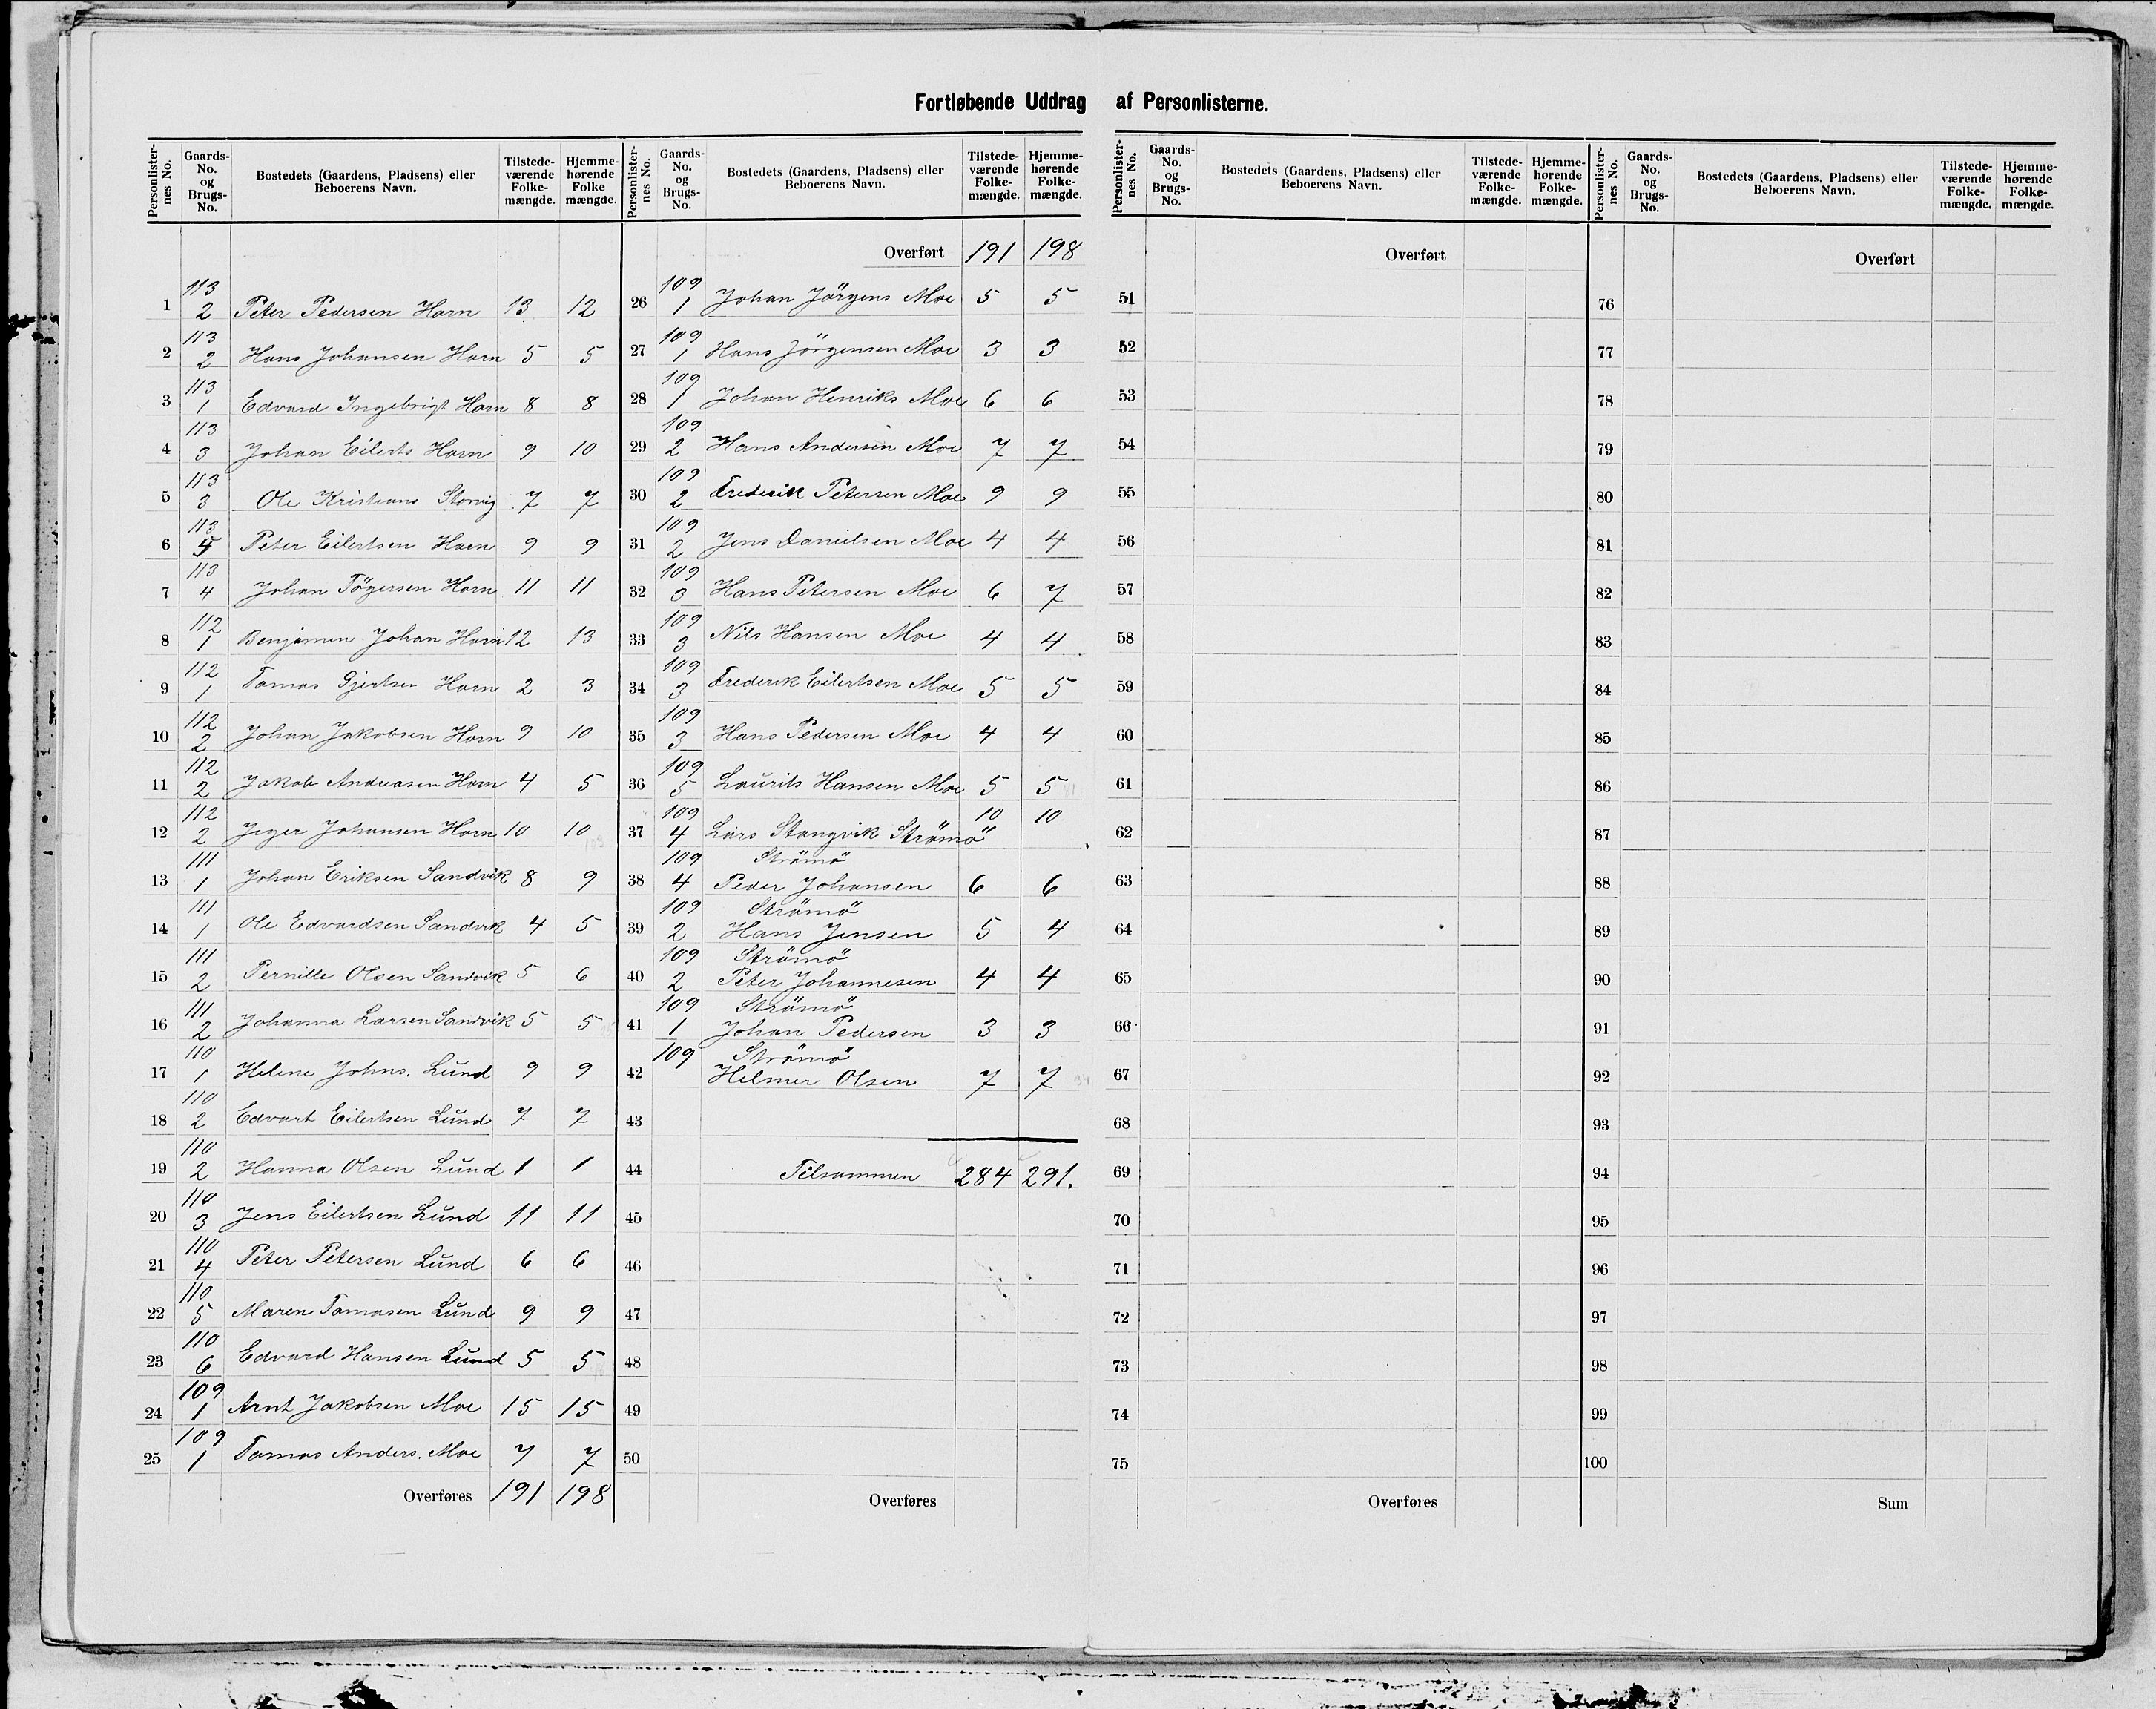 Fortløbende Uddrag af Personlisterne.
Personlister-nes No. Gaards-No. og Brugs-No. Bostedets (Gaardens, Pladsens) eller Beboerens Navn. Tilstede-værende Folke-mængde. Hjemme-hørende Folke mængde.
1 113/2 Peter Pedersen Horn 13 12
2 113/2 Hans Johansen Horn 5 5
3 113/1 Edvard Ingebrigt Horn 8 8
4 113/3 Johan Eilerts Horn 9 10
5 113/3 Ole Kristians Storvig 7 7
6 113/ Peter Eilertsen Horn 9 9
7 113/4 Johan Tögersen Horn 11 11
8 112/1 Benjamin Johan Horn 12 13
9 112/1 Tomas Gjertsen Horn 2 3
10 112/2 Johan Jakobsen Horn 9 10
11 112/2 Jakob Andreasen Horn 4 5
12 112/2 Jeger Johansen Horn 10 10
13 111/1 Johan Eriksen Sandvik 8 9
14 111/1 Ole Edvardsen Sandvik 4 5
15 111/2 Pernille Olsen Sandvik 5 6
16 111/2 Johanna Larsen Sandvik 5 5
17 110/1 Helene Johns. Lund 9 9
18 110/2 Edvart Eilertsen Lund 7 7
19 110/2 Hanna Olsen Lund 1 1
20 110/3 Jens Eilertsen Lund 11 11
21 110/4 Peter Petersen Lund 6 6
22 110/5 Maren Tomasen Lund 9 9
23 110/6 Edvard Hansen Lund 5 5
24 109/1 Arnt Jakobsen Moe 15 15
25 109/1 Tomas Anders. Moe 7 7
Overføres 191 198
Personlister-nes No. Gaards-No. og Brugs-No. Bostedets (Gaardens, Pladsens) eller Beboerens Navn. Tilstede-værende Folke-mængde. Hjemme-hørende Folke-mængde.
Overført 191 198
26 109/1 Johan Jörgens Moe 5 5
27 109/1 Hans Jörgensen Moe 3 3
28 109/1 Johan Henriks Moe 6 6
29 109/2 Hans Andersen Moe 7 7
30 109/2 Frederik Petersen Moe 9 9
31 109/2 Jens Danielsen Moe 4 4
32 109/3 Hans Petersen Moe 6 7
33 109/3 Nils Hansen Moe 4 4
34 109/3 Frederik Eilertsen Moe 5 5
35 109/3 Hans Pedersen Moe 4 4
36 109/5 Laurits Hansen Moe 5 5
37 109/4 Lars Stangvik Strömö 10 10
38 109/4 Strömö Peder Johansen 6 6
39 109/2 Strömö Hans Jensen 5 4
40 109/2 Strömö Peter Johannesen 4 4
41 109/1 Strömö Johan Pedersen 3 3
42 109 Strömö Helmer Olsen 7 7
43
44 Tilsammen 284 291.
45
46
47
48
49
50
Overføres
Personlister-nes No. Gaards-No. og Brugs-No. Bostedets (Gaardens, Pladsens) eller Beboerens Navn. Tilstede-værende Folke-mængde. Hjemme-hørende Folke-mængde.
Overført
51
52
53
54
55
56
57
58
59
60
61
62
63
64
65
66
67
68
69
70
71
72
73
74
75
Overføres
Personlister-nes No. Gaards-No. og Brugs-No. Bostedets (Gaardens, Pladsens) eller Beboerens Navn. Tilstede-værende Folke-mængde. Hjemme-hørende Folke-mængde.
Overført
76
77
78
79
80
81
82
83
84
85
86
87
88
89
90
91
92
93
94
95
96
97
98
99
100
Sum